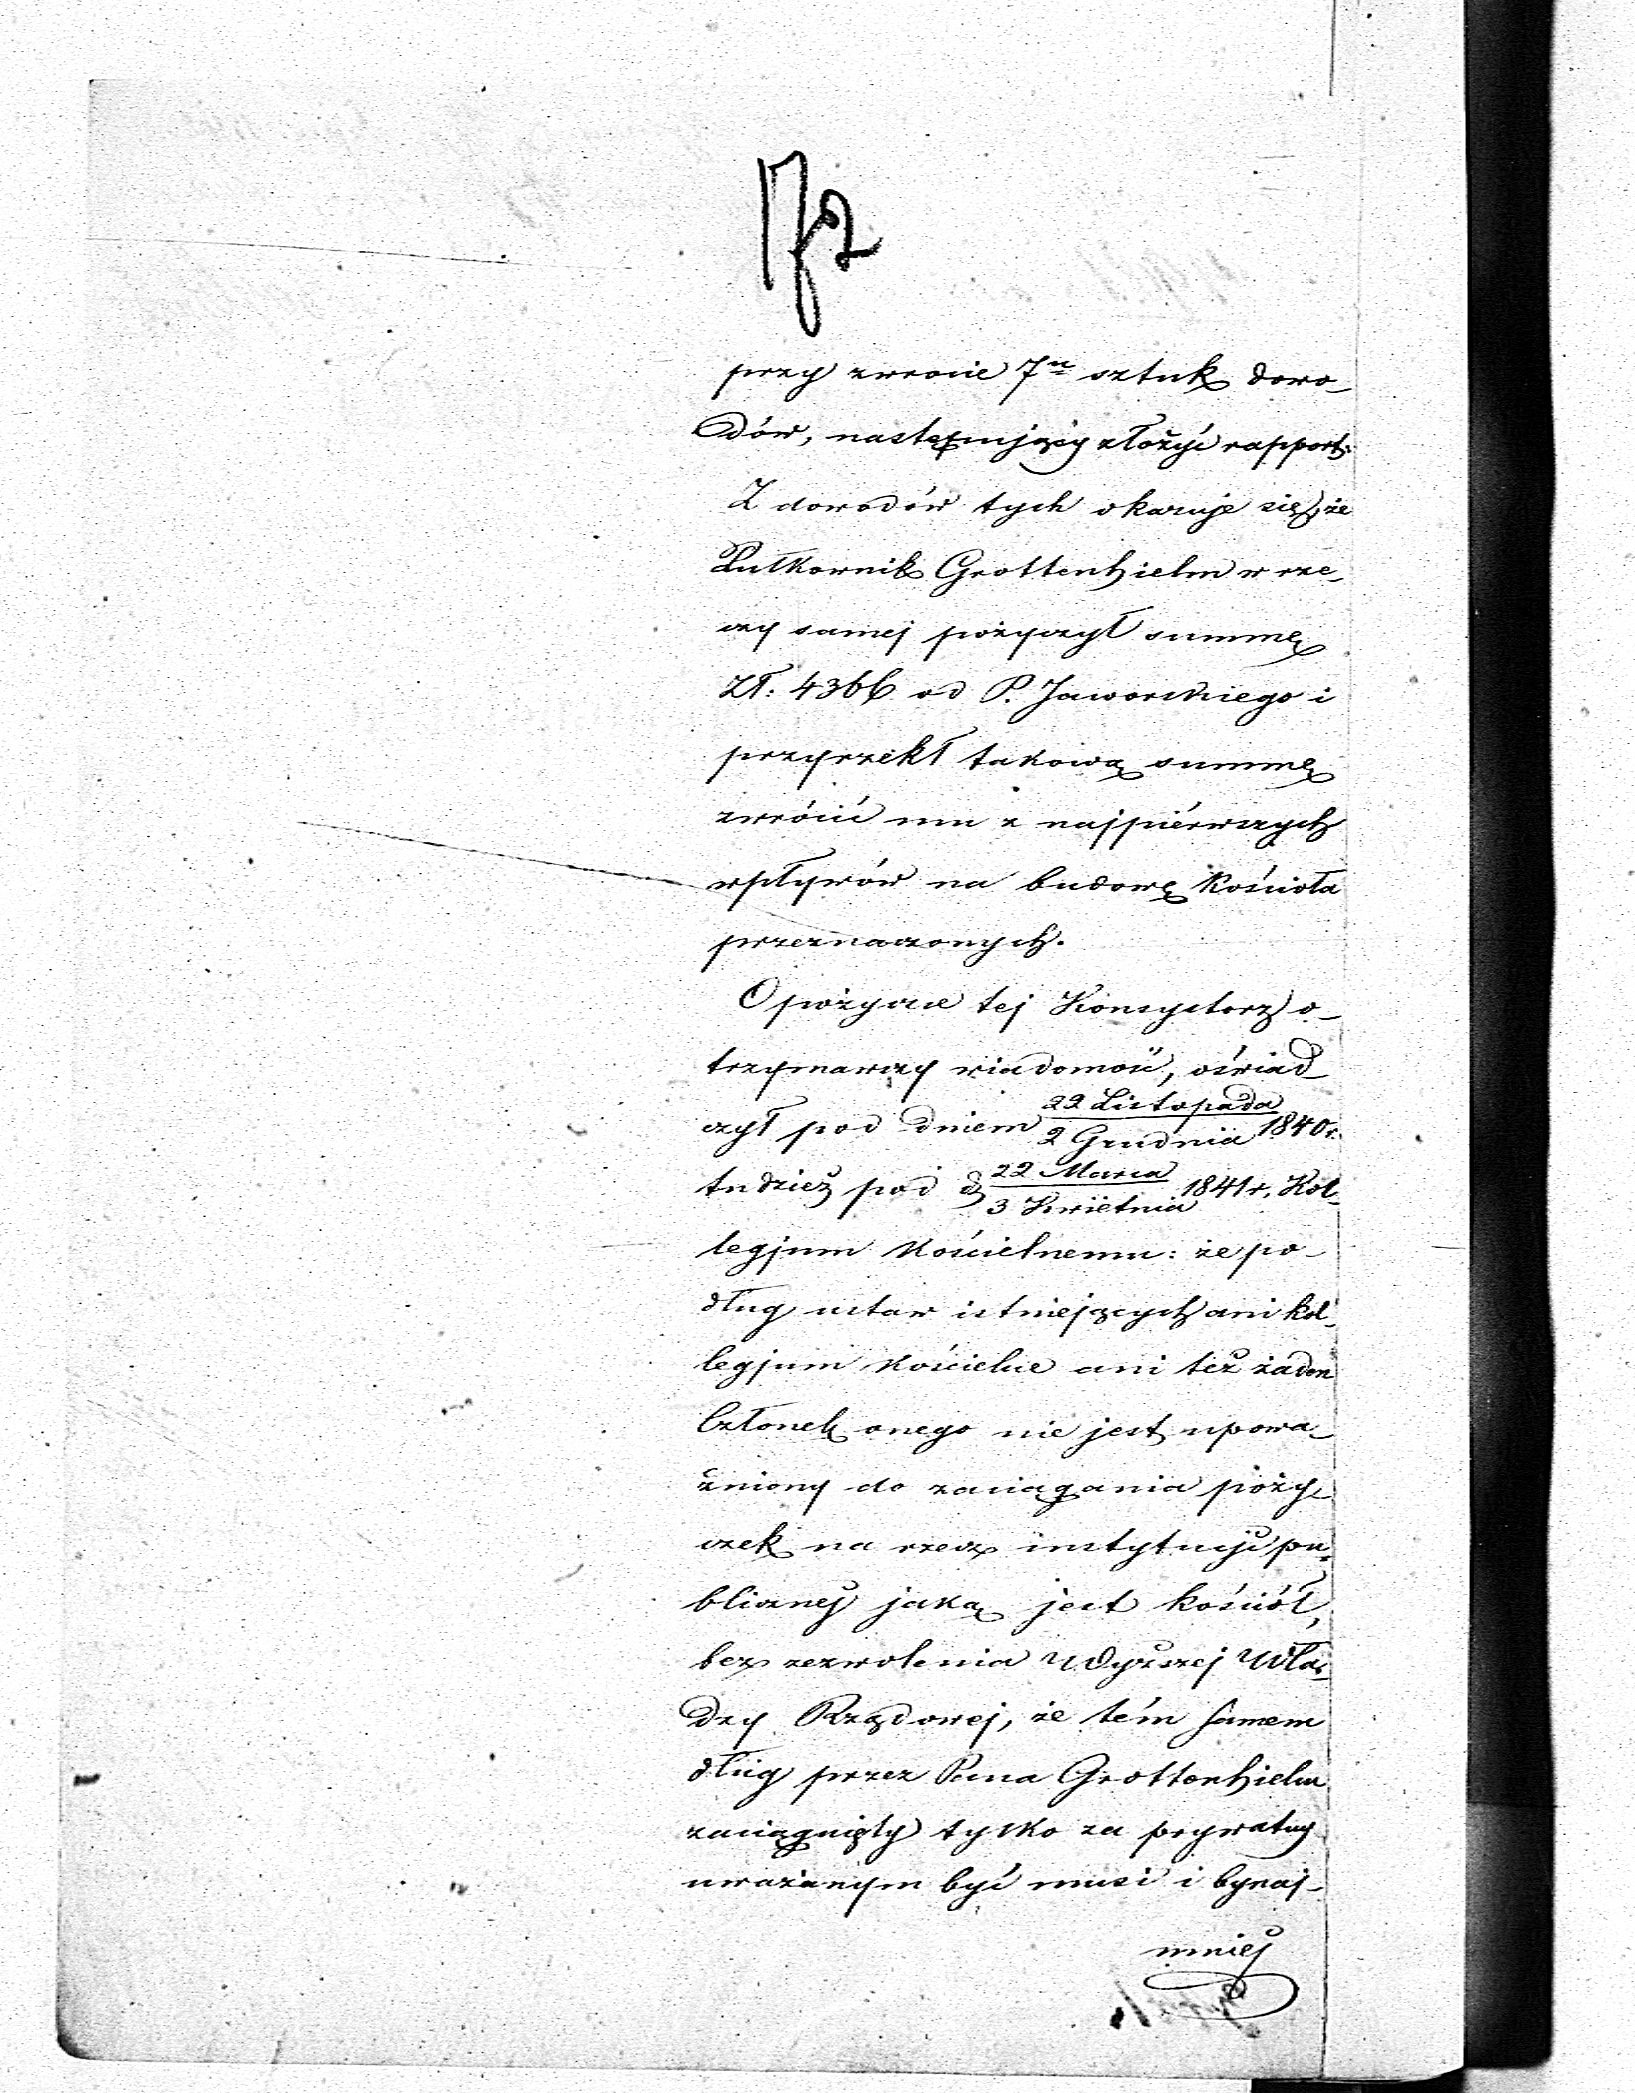 172
przy zwrocie 7u sztuk dowo-
dów, następujący złożyć rapport:
Z dowodów tych okazuje się, że
Pułkownik Grottenhielm w rze-
czy samej pożyczył summę
Zł: 4366 od P. Jaworskiego i
przyrzekł takową summę
zwrócić mu z najpiérwszych
wpływów na budowę Kościoła
przeznaczonych.
O pożyczce tej Konsystorz o-
trzymawszy wiadomość, oświad-
czył pod dniem 22 Listopada / 2 Grudnia 1840 r.
tudzież pod d 22 Marca / 3 Kwietnia 1841 r. Kol-
legjum Kościelnemu: że po-
dług ustaw istniejących ani kol-
legjum Kościelne ani też żaden
Członek onego nie jest upowa-
żniony do zaciągania poży-
czek na rzecz instytucji pu-
blicznej jaką jest kościół,
bez zezwolenia Wyższej Wła-
dzy Rządowej, że tém samem
dług przez Pana Grottenhielm
zaciągnięty tylko za prywatny
uważanym być musi i bynaj-
mniej